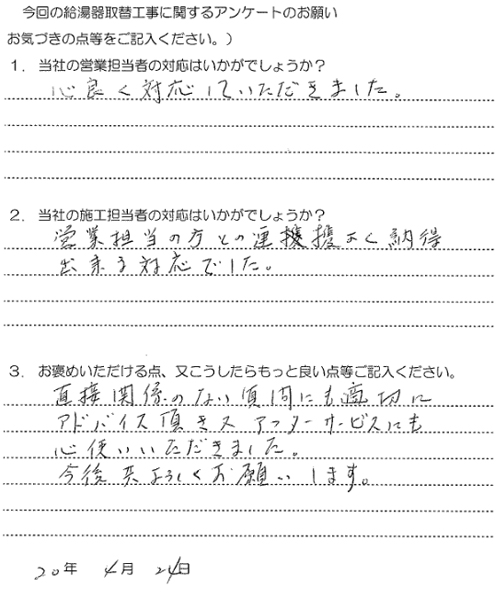 今回の給湯器取替工事に関するアンケートのお願い
お気づきの点等をご記入ください。）
１．当社の営業担当者の対応はいかがでしょうか？
心良く対応していただきました。
２．当社の施工担当者の対応はいかがでしょうか？
営業担当の方との連携よく納得
出来る対応でした。
３．お褒めいただける点、又こうしたらもっと良い点等ご記入ください。
直接関係のない質問にも適切に
アドバイス頂きスアフターサービスにも
心使いいただきました。
今後共よろしくお願いします。
20年 4月 24日